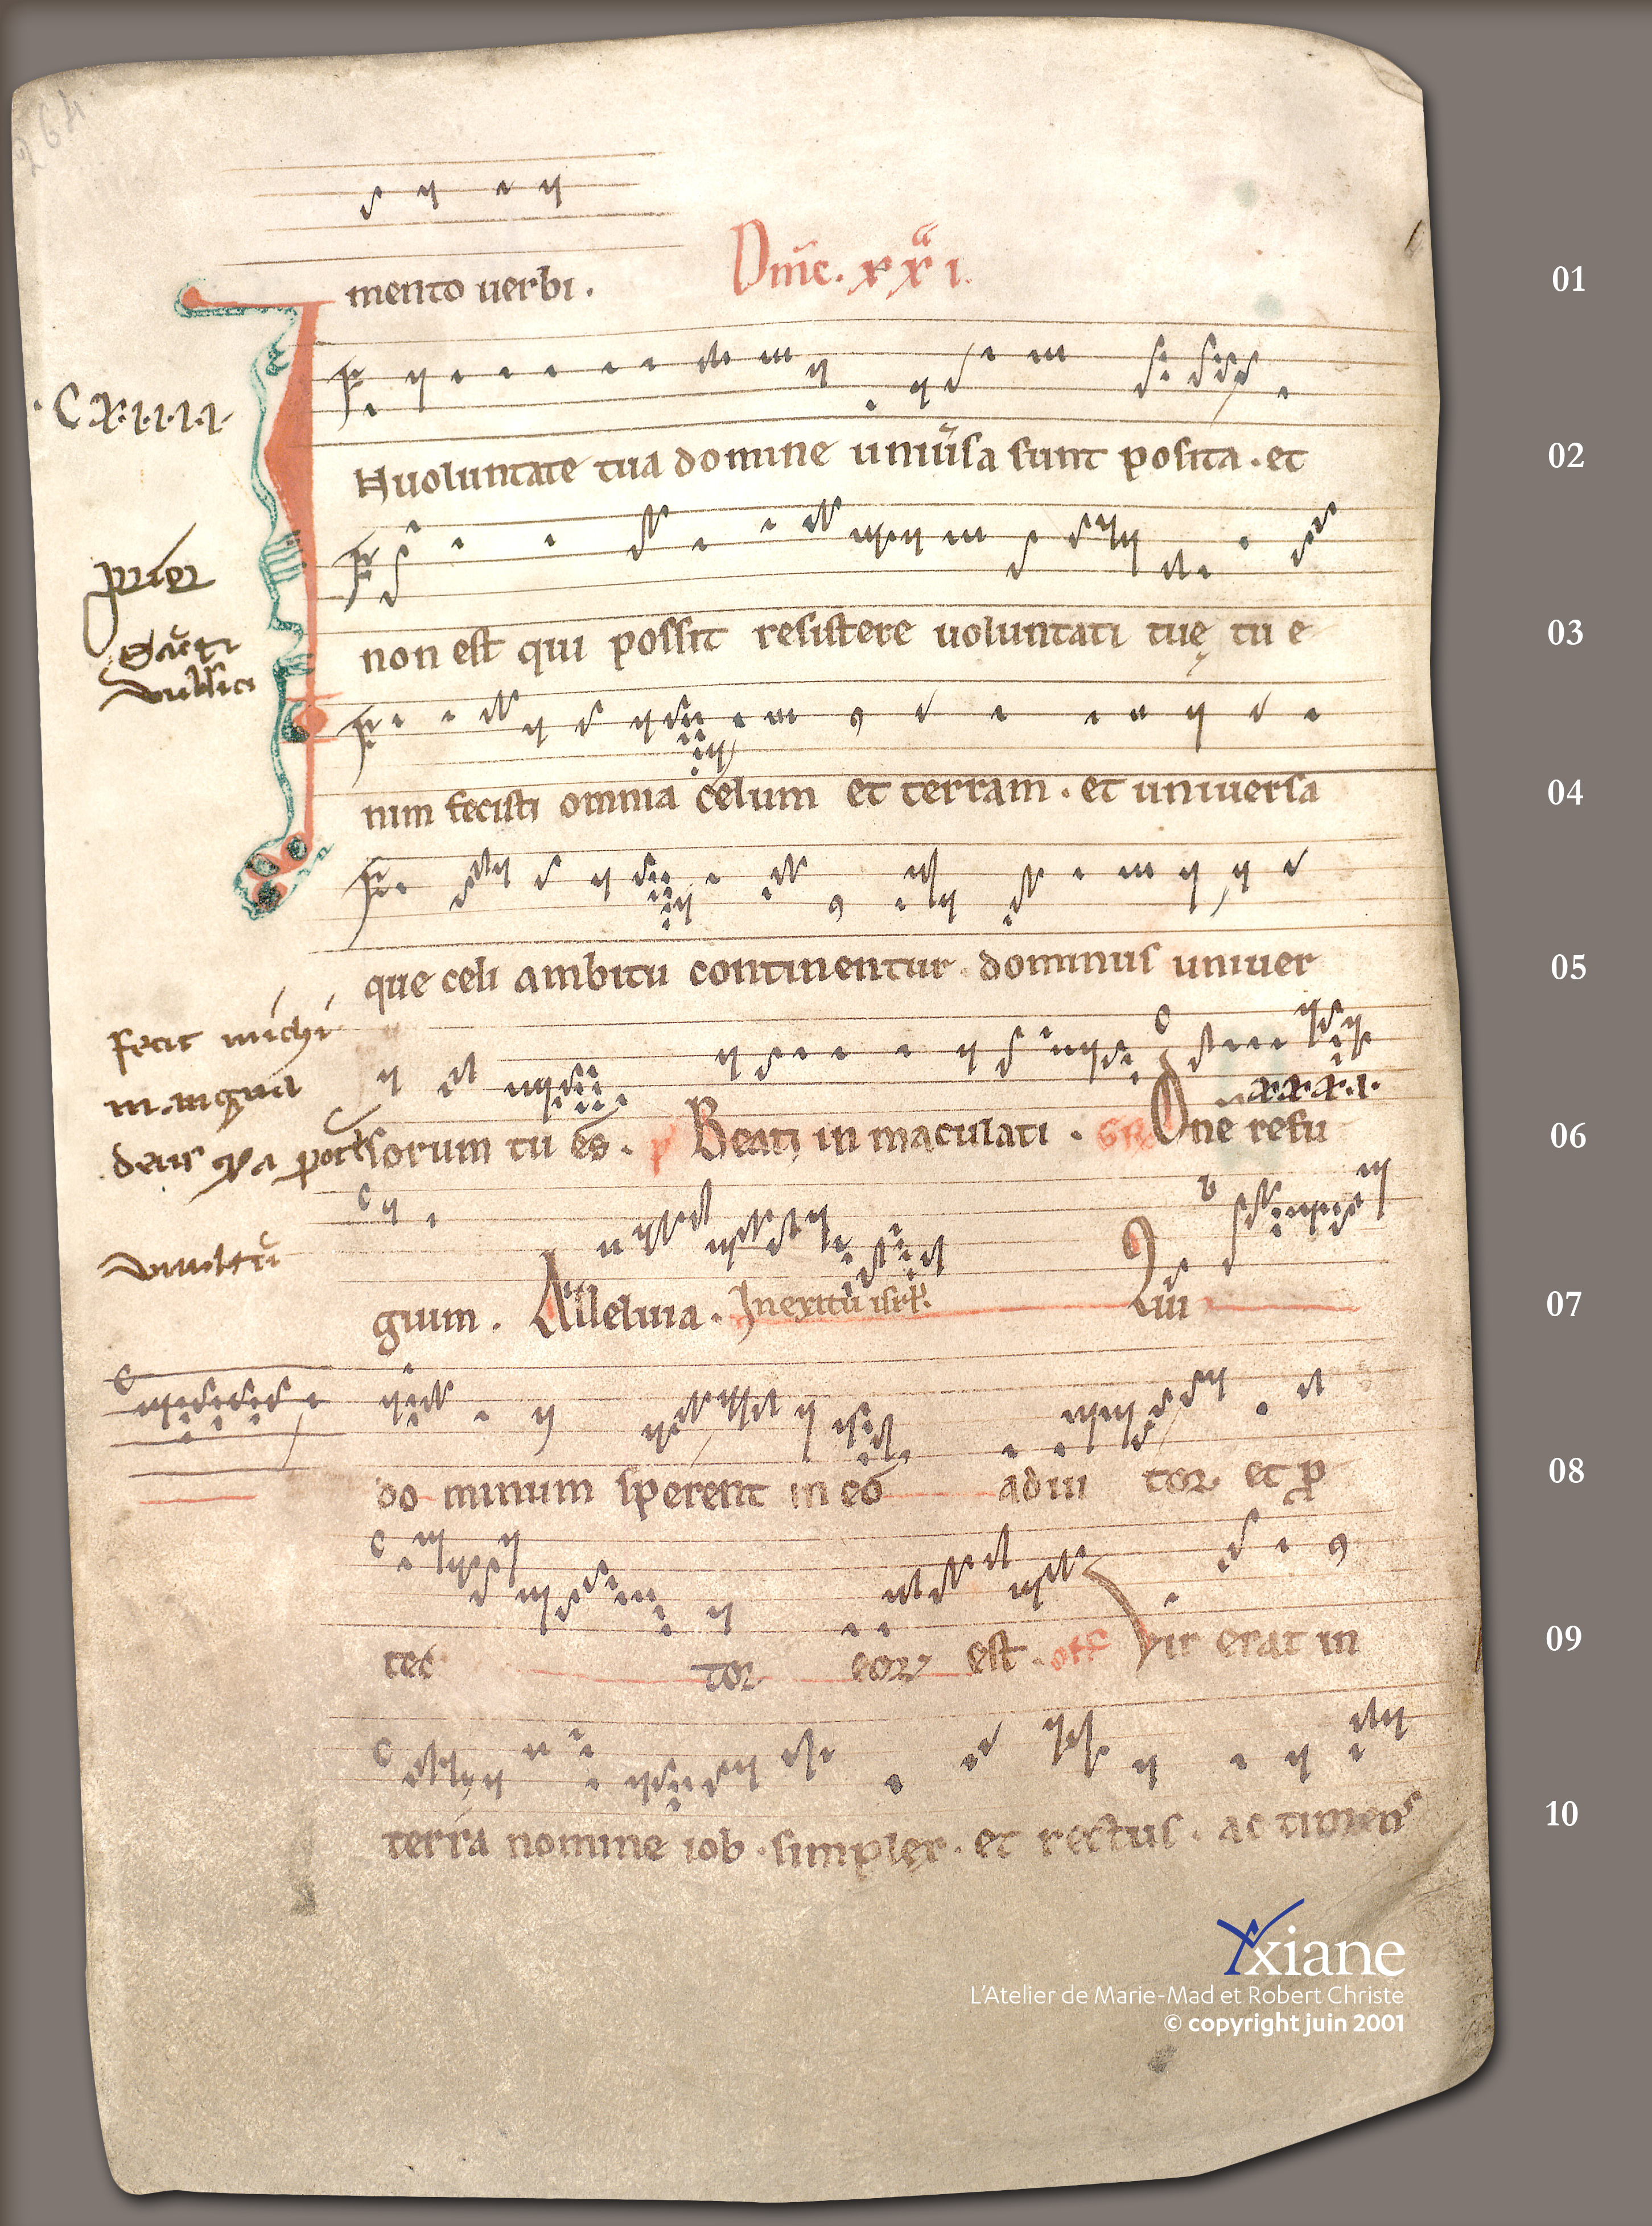 264
mento uerbi. Dnīc. xxi. a
01
C.X.I.I.I.I.
IHuoluntate tua domine uniūsa sunt posita. et
02
non est qui possit resistere uoluntati tuę tu e
03
nim fecisti omnia celum et terram. et uniuersa
04
que celi ambitu continentur. dominus uniuer
05
fecit michi
sorum tu es. Beati in maculati. GR Dne refu
06
gium. Alleluia. In exitu isrl. Qui
07
do minum sperent in eo adiu tor et p
08
tec tor eor est. off Vir erat in
09
terra nomine iob. simplex. et rectus. ac timens
10
Yxiane
L'Atelier de Marie-Mad et Robert Christe
© copyright juin 2001